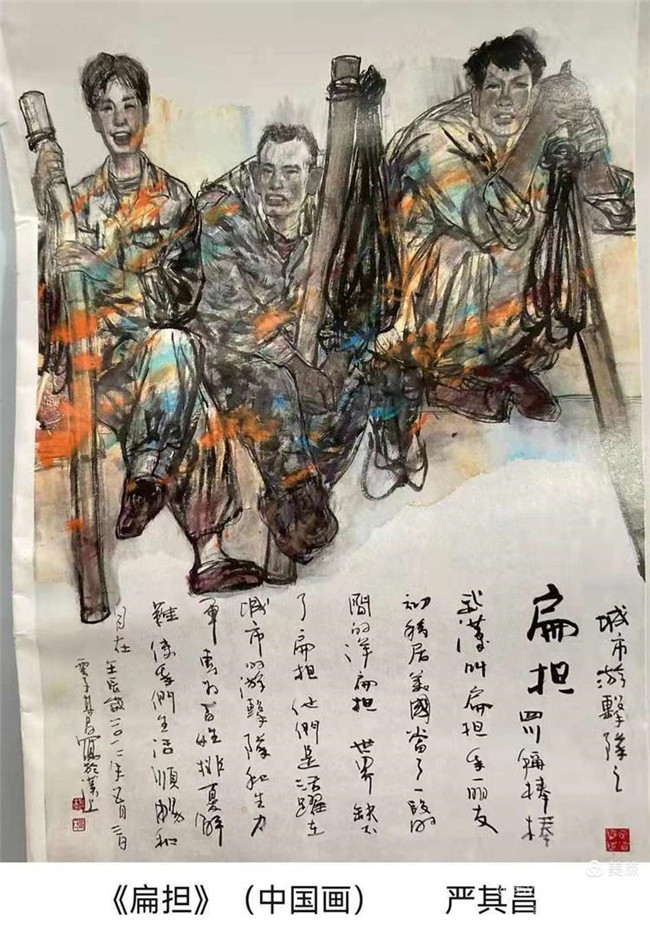 城市游擊隊之
扁担 四川稱棒棒
武漢叫扁担 一友
初移居美國當了一段
間的洋扁担 世界缺不
了扁担 他們是活躍在
城市的游擊隊和生力
軍 专为百姓排憂解
難 使 們生活順暢和
自在 壬辰歲二〇一二年五月 日
其昌寫於漢上
美篇
《扁担》（中国画） 严其昌